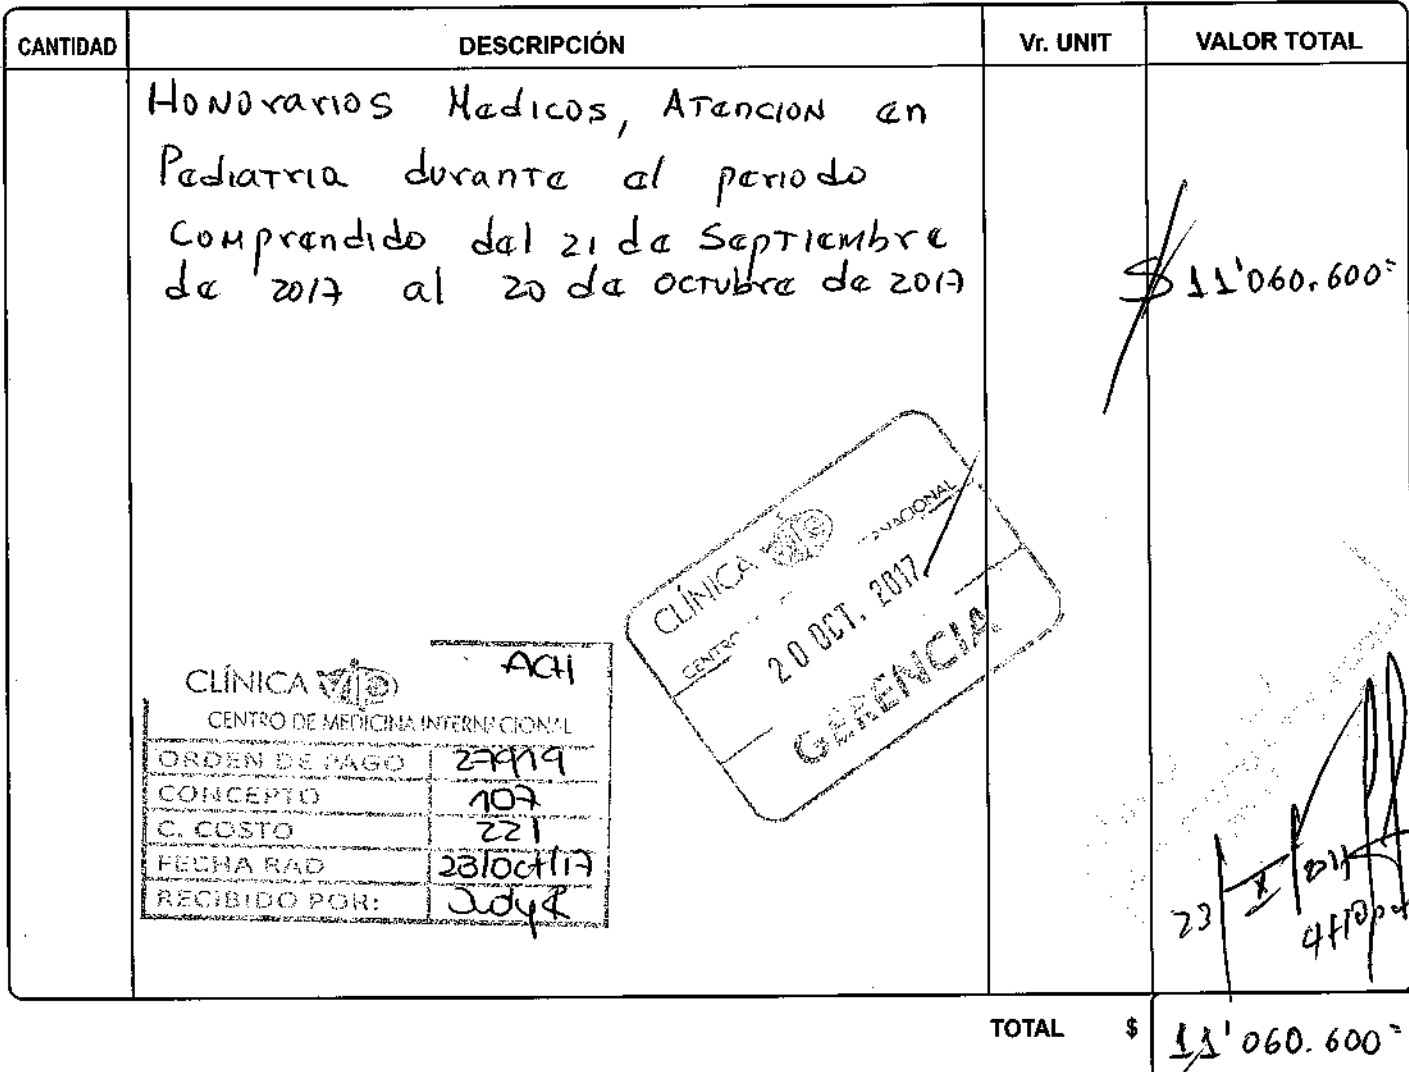 CANTIDAD DESCRIPCIÓN Vr. UNIT VALOR TOTAL
Honorarios Medicos, Atencion en
Pediatria durante el periodo
Comprendido del 21 de Septiembre
de 2017 al 20 de octubre de 2017
$ 11'060.600=
CLÍNICA VIP
CENTRO
20 OCT. 2017
GERENCIA
ACH
CLÍNICA VIP
CENTRO DE MEDICINA INTERNACIONAL
ORDEN DE PAGO 27919
CONCEPTO 107
C. COSTO 221
FECHA RAD 23/oct/17
RECIBIDO POR: Judy R
23 X
TOTAL $ 11'060.600=